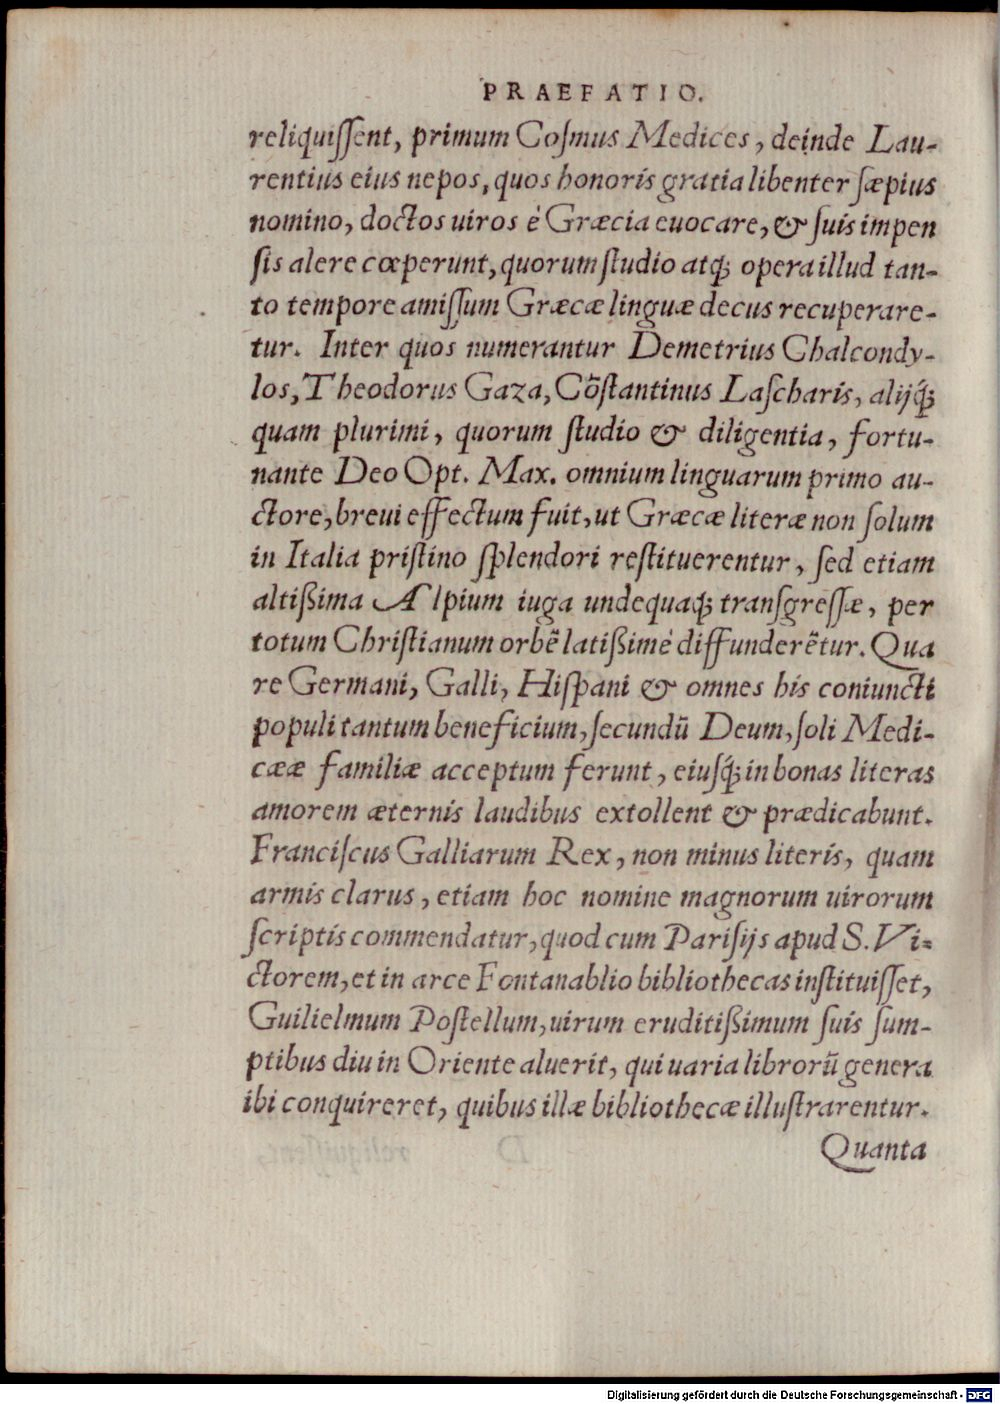 PRAEFATIO.
reliquiſſent, primum Coſmus Medices, deinde Lau-
rentius eius nepos, quos honoris gratia libenter ſæpius
nomino, doctos uiros è Græcia euocare, & ſuis impen
ſis alere cœperunt, quorum ſtudio atq́; opera illud tan-
to tempore amiſſum Græcæ linguæ decus recuperare-
tur. Inter quos numerantur Demetrius Chalcondy-
los, Theodorus Gaza, Cōſtantinus Laſcharis, alijq́;
quam plurimi, quorum ſtudio & diligentia, fortu-
nante Deo Opt. Max. omnium linguarum primo au-
ctore, breui effectum fuit, ut Græcæ literæ non ſolum
in Italia priſtino ſplendori reſtituerentur, ſed etiam
altißima Alpium iuga undequaq́; tranſgreſſæ, per
totum Chriſtianum orbē latißimè diffunderētur. Qua
re Germani, Galli, Hiſpani & omnes his coniuncti
populi tantum beneficium, ſecundū Deum, ſoli Medi-
cææ familiæ acceptum ferunt, eiuſq́; in bonas literas
amorem æternis laudibus extollent & prædicabunt.
Franciſcus Galliarum Rex, non minus literis, quam
armis clarus, etiam hoc nomine magnorum uirorum
ſcriptis commendatur, quod cum Pariſijs apud S. Vi-
ctorem, et in arce Fontanablio bibliothecas inſtituiſſet,
Guilielmum Poſtellum, uirum eruditißimum ſuis ſum-
ptibus diu in Oriente aluerit, qui uaria librorū genera
ibi conquireret, quibus illæ bibliothecæ illuſtrarentur.
Quanta
Digitalisierung gefördert durch die Deutsche Forschungsgemeinschaft - DFG